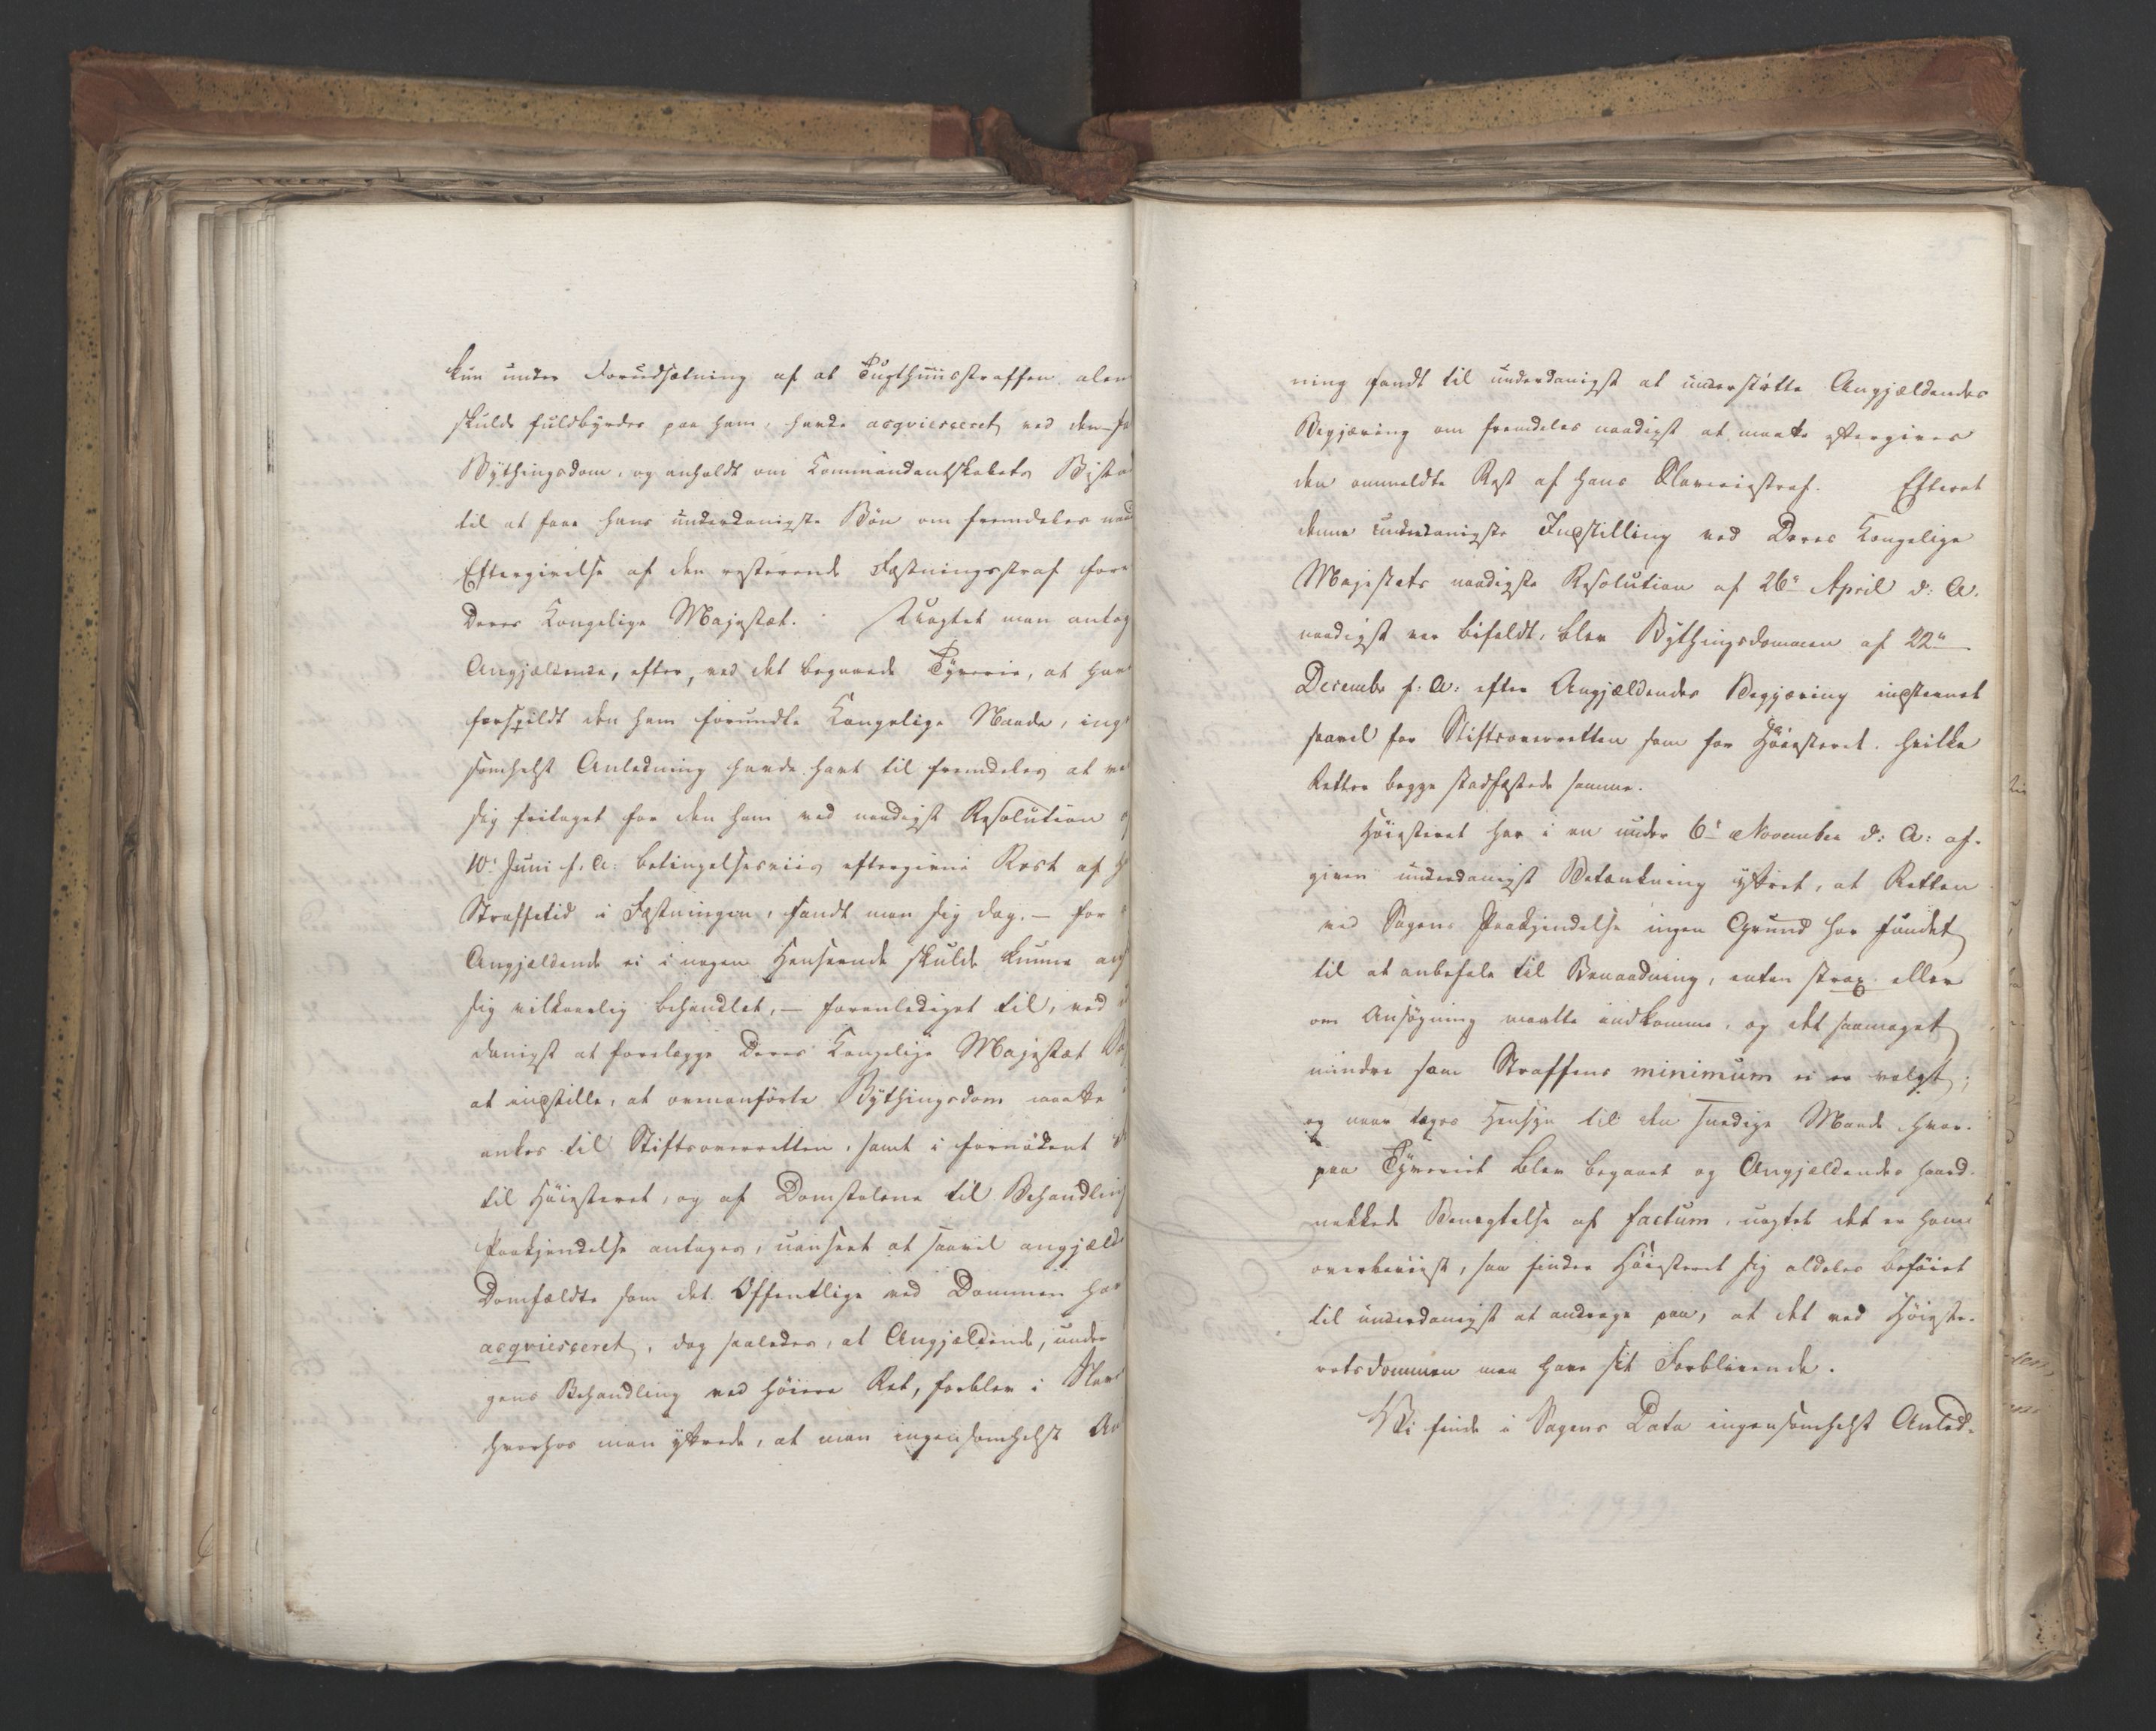 kun under Forudsætning af at Tugthuusstraffen alen
skulde fuldbyrdes paa ham, havde acqviesceret ved den fa
Bythingsdom, og anholdt om Kommandantskabets Bista
til at faae hans underdanigste Bøn om fremdeles naad
Eftergivelse af den resterende Fæstningsstraf fore
Deres Kongelige Majestæt. Uagtet man antog
Angjældende, efter, ved det begaaede Tyverie, at have
forspildt den ham forundte Kongelige Naade, inge
somhelst Anledning havde havt til fremdeles at ve
sig fritaget for den ham ved naadigst Resolution
10' Juni f. A: betingelsesviis eftergivne Rest af h
Straffetid i Fæstningen, fandt man sig dog, – for
Angjældende ei i nogen Henseende skulde kunne ans
sig vilkaarlig behandlet, – foranlediget til, und
danigst at forelægge Deres Kongelige Majestæt
at indstille, at ovenanførte Bythingsdom maatte
ankes til Stiftsoverretten, samt i fornødent
til Høiesteret, og af Domstolene til Behandling
Paakjendelse antages, uanseet at saavel angjælde
Domfældte som det Offentlige ved Dommen har
acqviesceret, dog saaledes, at Angjældende, under
gens Behandling ved høiere Ret, forblev i Slav
hvorhos man yttrede, at man ingensomhelst An
ning fandt til underdanigst at understøtte Angjældendes
Begjæring om fremdeles naadigst at maatte eftergives
den ommeldte Rest af hans Slaveriestraf. Efterat
denne underdanigste Indstilling ved Deres Kongelige
Majestæts naadigste Resolution af 26' April d: A.
naadigst var bifaldt, blev Bythingsdommen af 22'
December f: A: efter Angjældendes Begjæring indstevnet
saavel for Stiftsoverretten som for Høiesteret, hvilke
Retter begge stadfæstede samme.
Høiesteret har i en under 6' November d: A: af-
given underdanigst Betænkning yttret, at Retten
ved Sagens Paakjendelse ingen Grund har fundet
til at anbefale til Benaadning, enten strax eller
om Ansøgning maatte indkomme, og det saameget
mindre som Straffens minimum ei er valgt;
og naar tages Hensyn til den Maade hvor-
paa Tyveriet blev begaaet og Angjældendes haard-
nakkede Benægtelse af factum, uagtet det er ham
overbeviist, saa finder Høiesteret sig aldeles beføiet
til underdanigst at andrage paa, at det ved Høieste-
retsdommen maa have sit Forblivende.
Vi finde i Sagens Data ingensomhelst Anled-